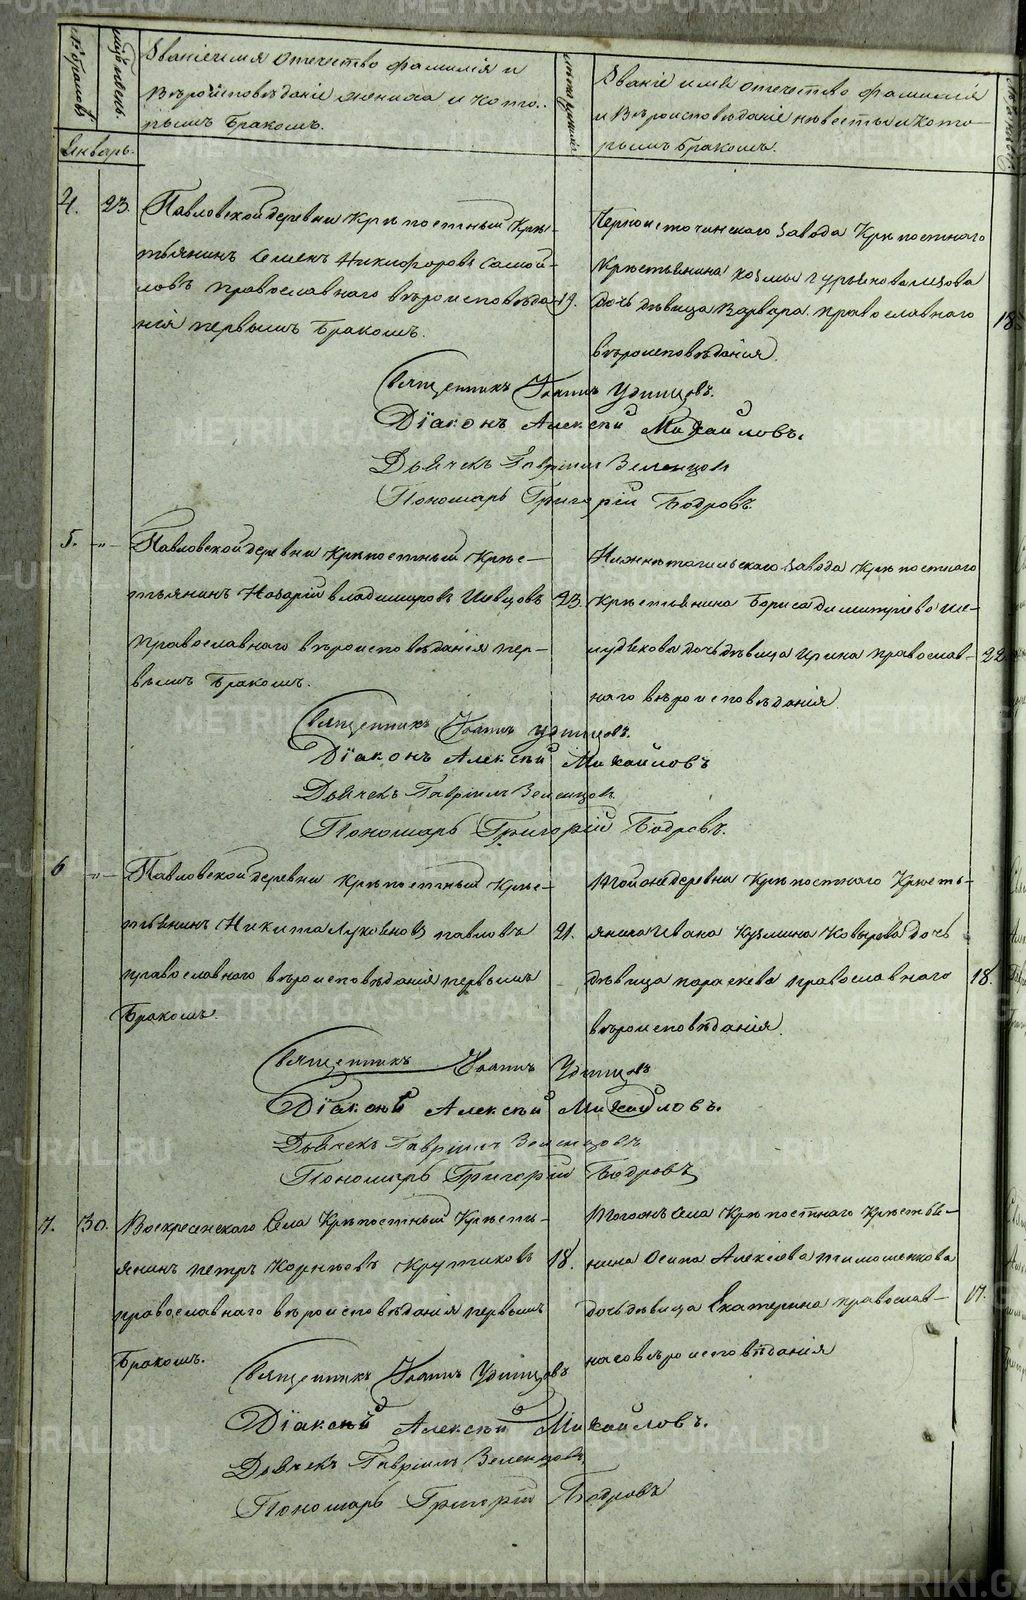 № браковъ
Мѣс. и день.
Званіе имя отечество фамилія и
вѣроисповѣданіе жениха и кото-
рымъ бракомъ.
лета жениха
Званіе имя отечество фамилія
и вѣроисповѣданіе невесты и кото-
рымъ бракомъ.
Январь.
4.
23.
Павловской деревни Крѣпостный Крѣс-
тьянинъ Семенъ Никифоровъ Самой-
ловъ православнаго вѣроисповѣда-
нія первымъ бракомъ.
19.
Черноисточинскаго завода Крѣпостнаго
Крѣстьянина Козмы Гурьянова
дочь дѣвица Варвара православнаго
вѣроисповѣданія.
18
Священникъ Іоаннъ Удинцовъ.
Діаконъ Алексѣй Михайловъ.
Дьячекъ Гавріилъ Зеленцовъ
Пономарь Григорій Бодровъ
5.
-"-
Павловской деревни Крѣпостный Крѣс-
тьянинъ Назарій Владимировъ Шевцовъ
православнаго вѣроисповѣданія пер-
вымъ бракомъ.
23.
Нижнетагильскаго завода Крѣпостнаго
Крѣстьянина Бориса Димитріева Ше-
лудякова дочь дѣвица Ирина православ-
наго вѣроисповѣданія.
22
Священникъ Іоаннъ Удинцовъ.
Діаконъ Алексѣй Михайловъ
Дьячекъ Гавріилъ Зеленцовъ
Пономарь Григорій Бодровъ.
6
-"-
Павловской деревни Крѣпостный Крѣс-
тьянинъ Никита Луковновъ Павловъ
православнаго вѣроисповѣданія первымъ
бракомъ.
21.
Той же деревни Крѣпостнаго Крѣсть-
янина Ивана Кузмина Ковырева дочь
дѣвица Параскева православнаго
вѣроисповѣданія.
18.
Священникъ Іоаннъ Удинцовъ
Діаконъ Алексѣй Михайловъ.
Дьячекъ Гавріилъ Зеленцовъ
Пономарь Григорій Бодровъ
7.
30.
Воскресенскаго Села Крѣпостный Крѣсть-
янинъ Петръ Корнѣевъ Крутиковъ
православнаго вѣроисповѣданія первымъ
бракомъ.
18.
Того же Села Крѣпостнаго Крѣстья-
нина Осипа Алексіева Тимошенкова
дочь дѣвица Екатерина православ-
наго вѣроисповѣданія
17.
Священникъ Іоаннъ Удинцовъ
Діаконъ Алексѣй Михайловъ.
Дьячекъ Гавріилъ Зеленцовъ
Пономарь Григорій Бодровъ
METRIKI.GASO-URAL.RU